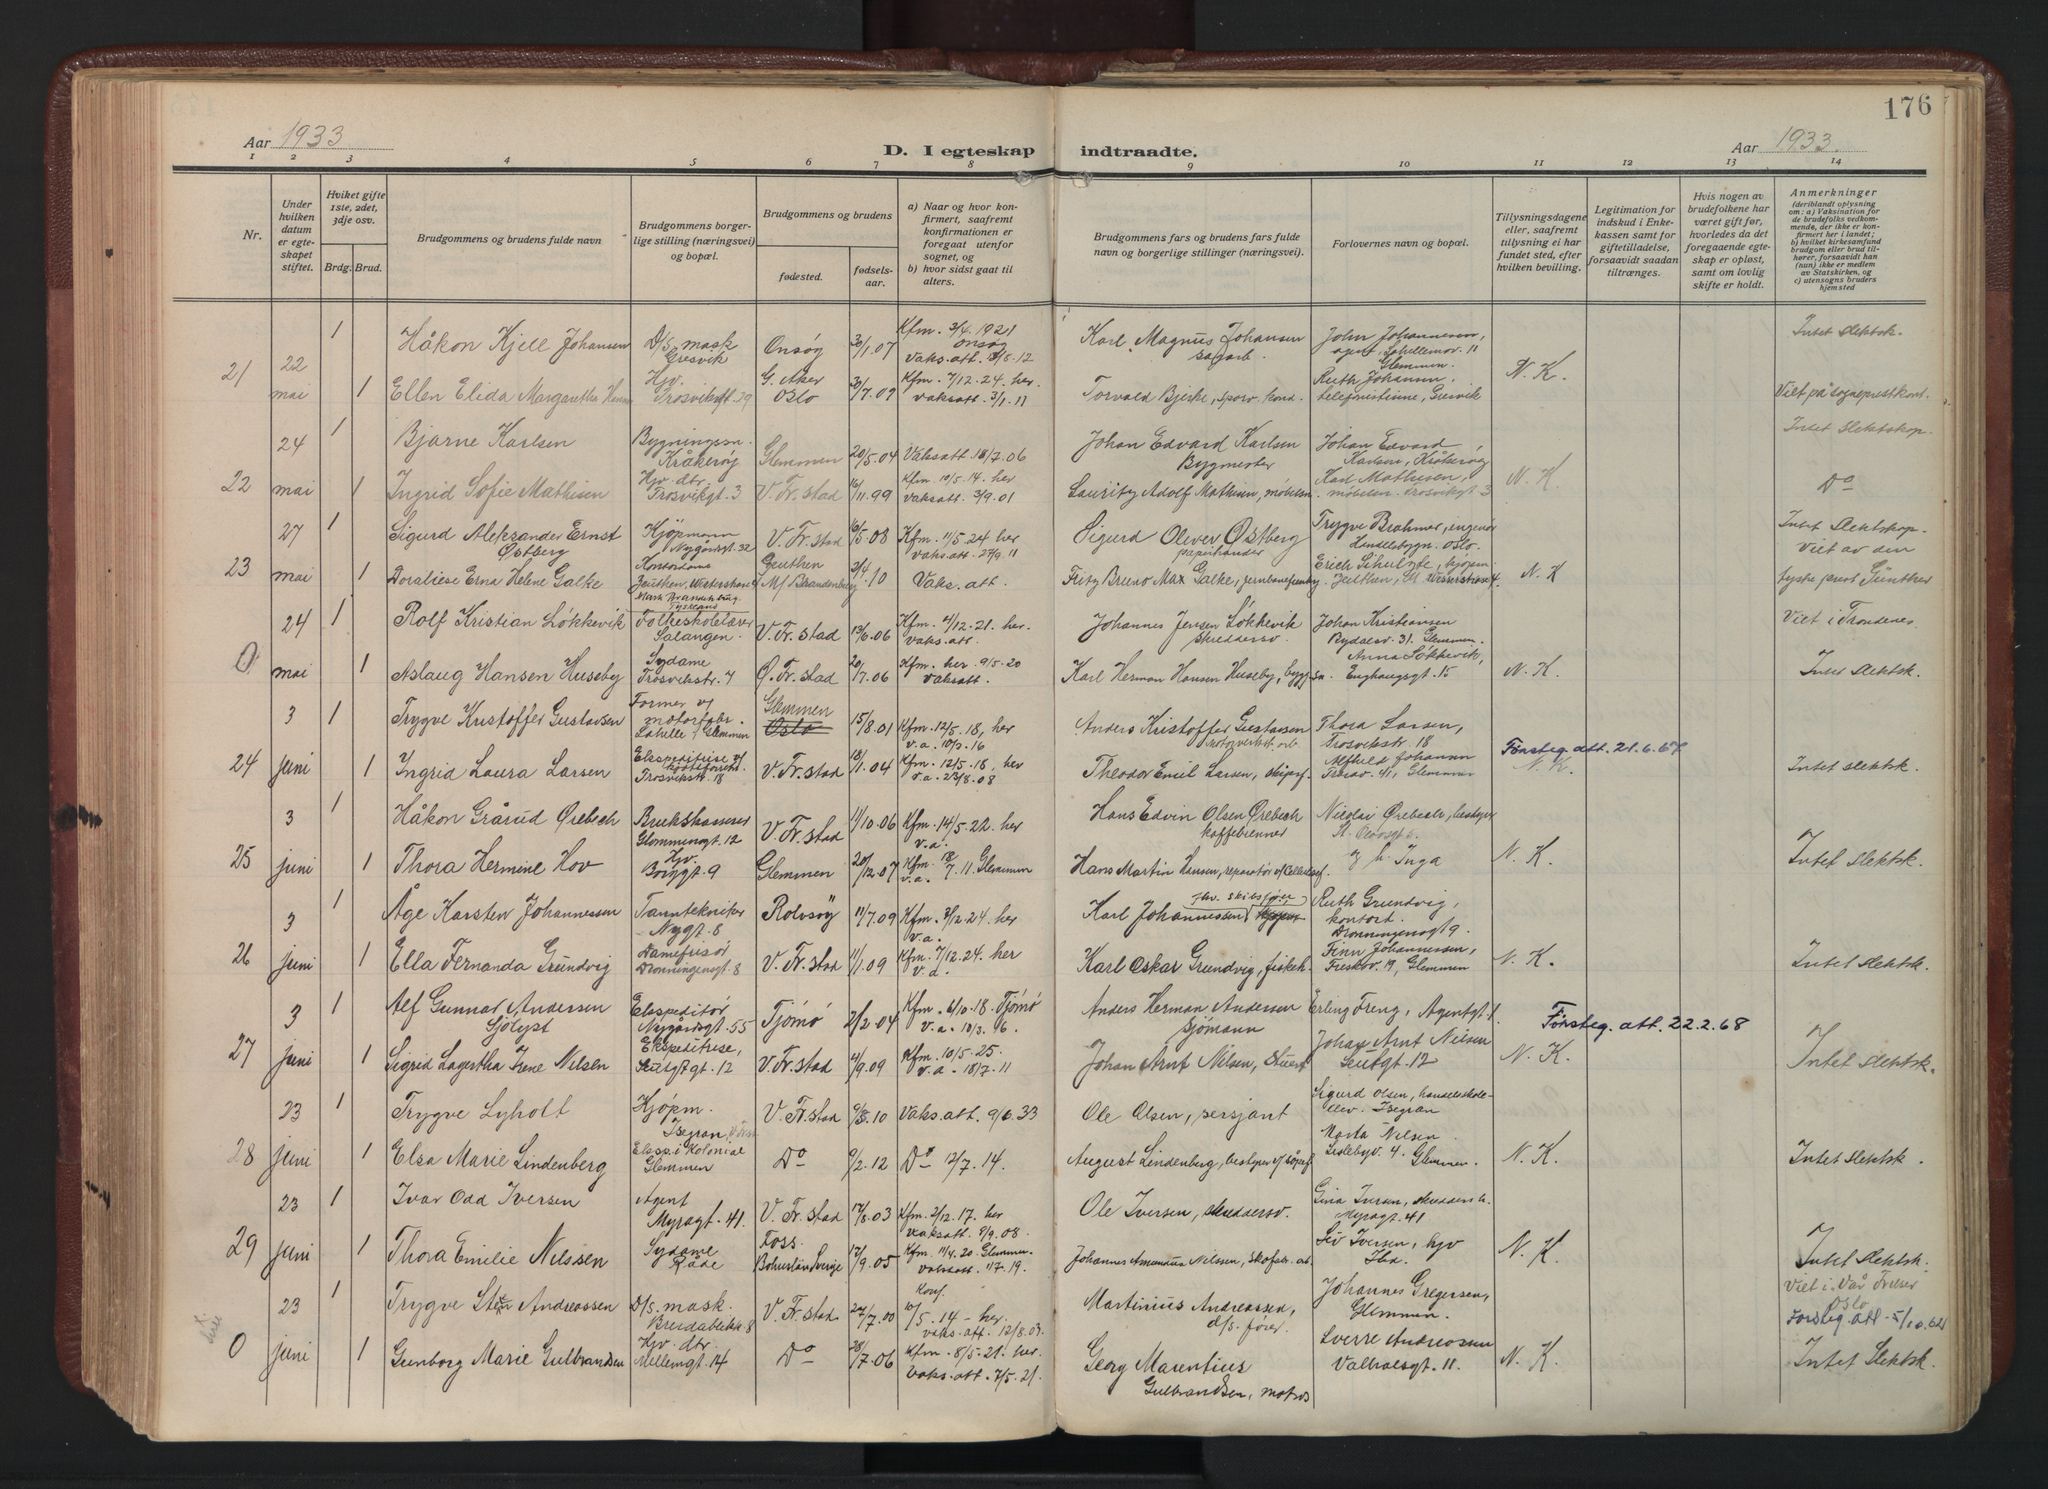 176
Aar 1933
D. I egteskap indtraadte.
Aar 1933.
1 2 3 4 5 6 7 8 9 10 11 12 13 14
Nr.
Under hvilken datum er egteskapet stiftet.
Hvilket gifte 1ste, 2det, 3dje osv.
Brdg. Brud.
Brudgommens og brudens fulde navn
Brudgommens borgerlige stilling (næringsvei) og bopæl.
Brudgommens og brudens
fødested.
fødselsaar.
a) Naar og hvor konfirmert, saafremt konfirmationen er foregaat utenfor sognet, og
b) hvor sidst gaat til alters.
Brudgommens fars og brudens fars fulde navn og borgerlige stillinger (næringsvei).
Forlovernes navn og bopæl.
Tillysningsdagene eller, saafremt tillysning ei har fundet sted, efter hvilken bevilling.
Legitimation for indskud i Enkekassen samt for giftetilladelse, forsaavidt saadan tiltrænges.
Hvis nogen av brudefolkene har været gift før, hvorledes da det foregaaende egteskap er opløst, samt om lovlig skifte er holdt.
Anmerkninger (deriblandt oplysning om: a) Vaksination for de brudefolks vedkommende, der ikke er konfirmert her i landet; b) hvilket kirkesamfund brudgom eller brud tilhører, forsaavidt han (hun) ikke er medlem av Statskirken, og c) utensogns bruders hjemsted
21 22 mai
1 Håkon Kjell Johansen D/S. mask Gresvik Onsøy 30/1.07 Kfm. 3/4. 1921 Onsøy Vaks. att. 18/8.12 Karl Magnus Johansen sagarb. John Johannesen, agent, Lahellemov. 11 Glemmen N. K. Intet slektsk.
1 Ellen Elida Margarethe Hansen Hjv. Trosvikstr. 29 G. Aker Oslo 30/7.09 Kfm. 7/12.24. her. Vaksatt. 3/1.11 Torvald Bjerke, sporv. kond. Ruth Johansen, telefonistinne, Gresvik Viet på sogneprestkont.
22 24 mai
1 Bjarne Karlsen Bygningssn. Kråkerøy Glemmen 20/5.04 Vaksatt. 18/7.06 Johan Edvard Karlsen Bygmester Johan Edvard Karlsen, Kråkerøy N. K. Intet slektskap.
1 Ingrid Sofie Mathisen Hjv. dtr. Trosvikgt. 3 V. Fr. stad 16/11.99 Kfm. 10/5.14. her Vaksatt. 3/9.01 Lauritz Adolf Mathisen, møbelsn. Karl Mathisen, møbelsn. Trosvikgt 3 Do
23 27 mai
1 Sigurd Aleksander Ernst Østberg Kjøpmann Nygårdsgt. 32 V. Fr. stad 6/5.08 Kfm. 11/5.24 her Vaks. att. 27/9.11 Sigurd Oliver Østberg papirhandler Trygve Brahmer, ingeniør Handelsbygn. Oslo. N. K Intet slektskap. Viet av den
1 Doraliese Erna Helene Galke Kontordame Zeuthen, Mark Brandenburg. Tyskland Zeuthen M/Brandenburg 3/4.10 Vaks. att. Fritz Bruno Max Galke, Erich Schultze, kjøpm. tyske prest Günther
0 24 mai
1 Rolf Kristian Løkkevik Folkeskolelærer Salangen. V. Fr. stad 13/6.06 Kfm. 4/12.21. her. Vaks. att. Johannes Jensen Løkkevik skreddersv Johan Kristiansen Rydalsv. 31. Glemmen. Viet i Trondenes
1 Aslaug Hansen Huseby Sydame Trosvikstr. 7 Ø. Fr. stad 20/7.06 Kfm. her. 9/5.20 Vaksatt. Karl Herman Hansen Huseby, bygn.sn. Anna Løkkevik, Enghaugsgt. 15 N. K. Intet slektsk.
24 3 juni
1 Trygve Kristoffer Gustavsen Former v/ motorfabr. Lahelle / Glemmen Glemmen Oslo 15/8.01 Kfm. 12/5.18, her v.a. 10/3.16 Anders Kristoffer Gustavsen motorverkst. arb. Thora Larsen, Trosvikstr. 18 Førsteg. att. 21.6.67.
1 Ingrid Laura Larsen Ekspeditrise v/ Trosvikstr. 18 V. Fr. stad 18/1.04 Kfm. 12/5.18, her v.a. 23/8.08 Theodor Emil Larsen, skipsf. Alfhild Johansen Freskov. 41, Glemmen N. K. Intet slektsk.
25 3 juni
1 Håkon Grårud Ørebech Brukskasserer Glommengt. 12 V. Fr. stad 11/10.06 Kfm. 14/5.22. her v.a. Hans Edvin Olsen Ørebech kaffebrenner Nicolai Ørebech, bestyrer N. K.
1 Thora Hermine Hov Hjv. Borggt. 9 Glemmen 20/12.07 Kfm. 7.11 Glemmen v.a. Hans Martin Hansen, reparatør v/ og h. Inga Intet slektsk.
26 3 juni
1 Åge Karsten Johannessen Tanntekniker Nygt. 8 Rolvsøy 11/7.09 Kfm. 3/12.24. her v.a. Karl Johannessen fhv. skibsfører Ruth Grundvig, kontord. Dronningensgt 9.
1 Ella Fernanda Grundvig Damefrisør Dronningensgt. 8 V. Fr. stad 11/1.09 Kfm. 7/12.24. her v.a. Karl Oskar Grundvig, fiskeh. Finn Johannessen, Freskov. 19, Glemmen N. K. Intet slektsk.
27 3 juni
1 Alf Gunnar Andersen Sjølyst Ekspeditør Nygårdsgt. 55 Tjømø 2/2.04 Kfm. 6/10.18 Tjømø v.a. 10/3.06. Anders Herman Andersen sjømann Erling Freng, Agentgt. 1. Førsteg. att. 22.2.68
1 Sigrid Lagertha Irene Nilsen Ekspeditrise, Leutgt. 12 V. Fr. stad 4/9.09 Kfm. 10/5.25. v.a. 18/7.11 Johan Arnt Nilsen, Stuert Johan Arnt Nilsen Leutgt. 12 N. K. Intet slektsk.
28 23 juni
1 Trygve Lyholt Kjøpm. Isegran V. Fr. stad 9/3.10 Vaks. att. 9/6.33 Ole Olsen, sersjant Sigurd Olsen, handelsskoleelev. Isegran
1 Elsa Marie Lindenberg Eksp. i Kolonial Glemmen Do 9/2.12 Do 12/7.14. August Lindenberg, bestyrer v/ Marta Nilsen Lislebyv. 4. Glemmen. N. K. Intet slektsk.
29 23 juni
1 Ivar Odd Iversen Agent Myragt. 41. V. Fr. stad 17/8.03 Kfm. 2/12.17. her Vaksatt. 8/9.08. Ole Iversen, skreddersv. Gina Iversen, Myragt. 41
1 Thora Emilie Nilssen Sydame Råde Foss. Bohuslän Sverige 17/9.05 Kfm. 11/4.20. Glemmen Vaksatt. 1/7.19. Johannes Amandus Nilsen, skofabr. arb. Siv Iversen, hjv Ibd. N. K. Intet slektsk.
0 23 juni
1 Trygve Andreassen D/S. mask. V. Fr. stad 27/7.00 Konf. 10/5.14 - her. Vaks. att. 12/8.03. Martinius Andreassen, d/s. fører Johannes Gregersen, Glemmen. Viet i Vår Frelser Oslo Førsteg. att 5/10.62
1 Gunborg Marie Gulbrandsen Hjv. dtr. Mellemgt. 14 Do 28/7.06 Kfm. 8/5.21. her. Vaks. att. 7/5.21. Georg Marentius Gulbrandsen, matros Sverre Andreassen Valhalsgt. 11. N. K. Intet slektsk.